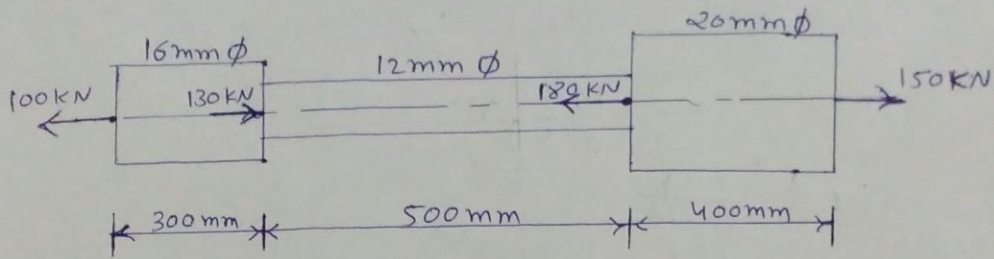 16mmϕ
12mm ϕ
20mmϕ
100KN
130KN
180KN
150KN
300mm
500mm
400mm